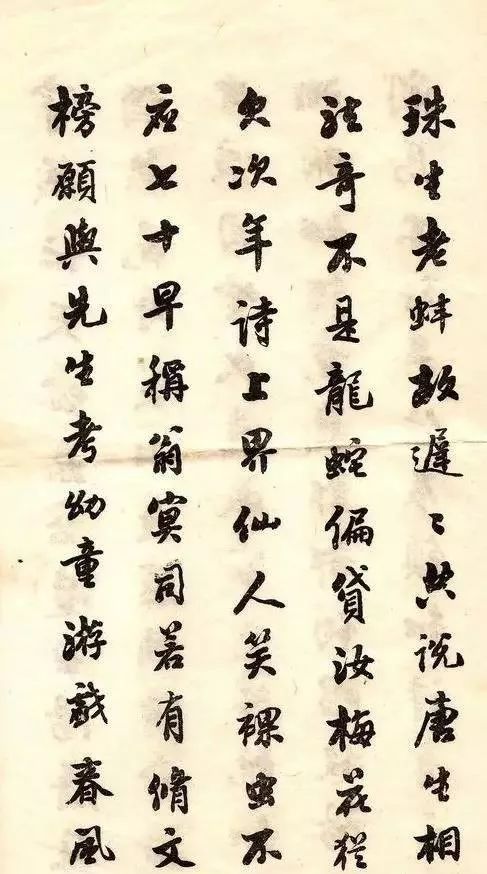 珠生老蚌故遲〻共说唐生相
法奇不是龍蛇偏貸汝梅花猶
欠次年诗上界仙人笑裸虫不
应七十早稱翁冥司若有脩文
榜願與先生考幼童游戲春風